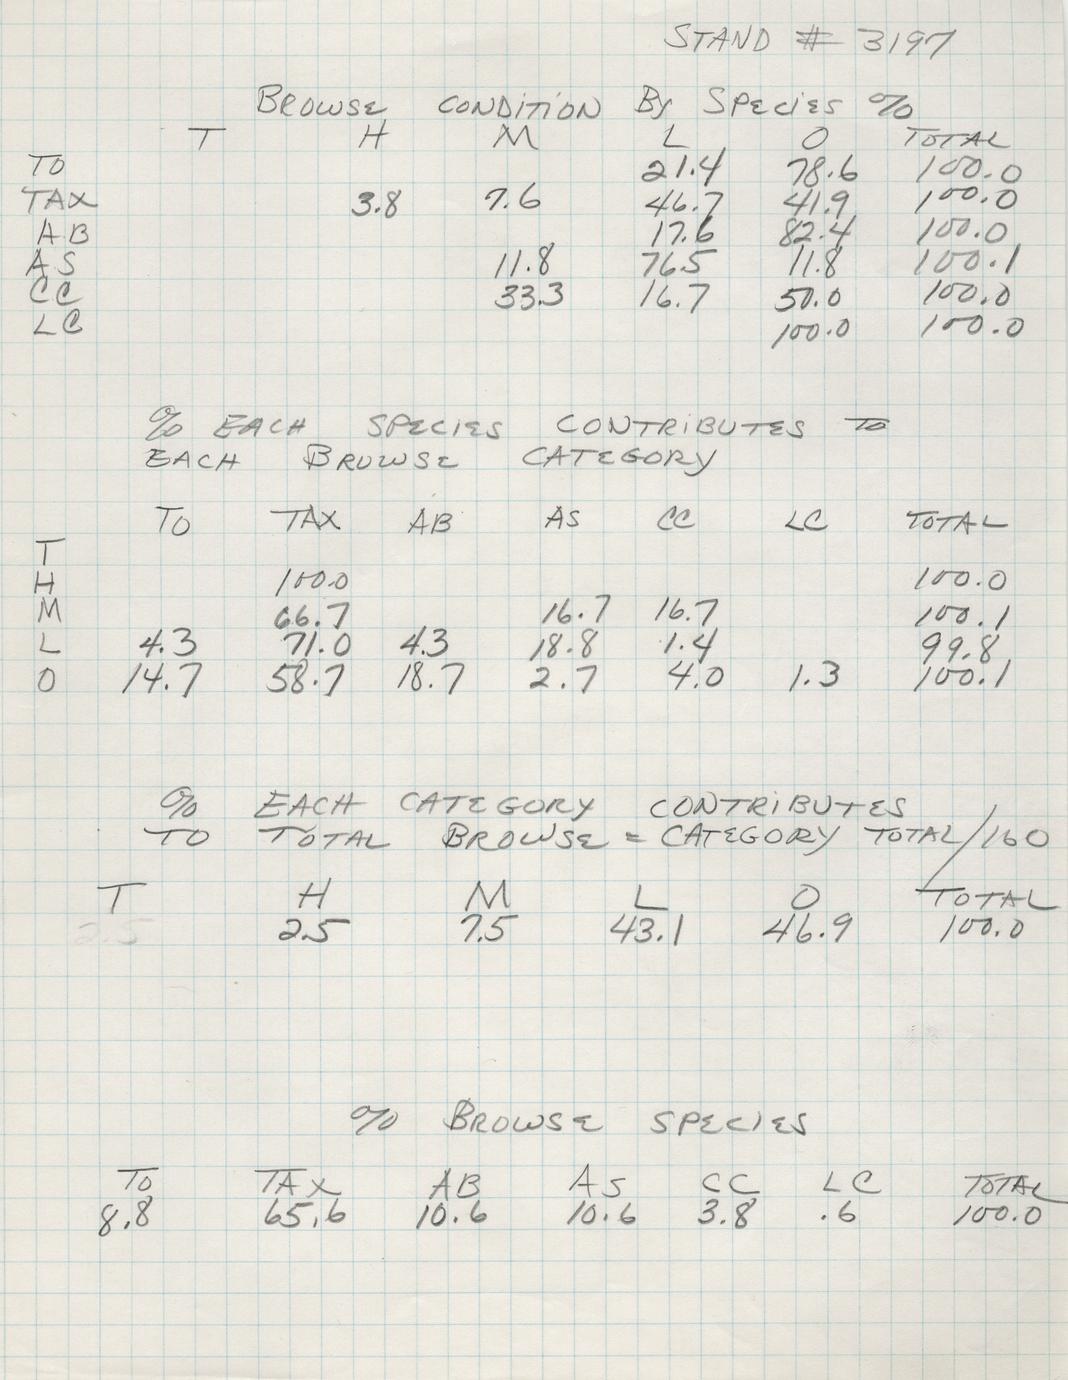 STAND # 3197
BROWSE CONDITION BY SPECIES %
T H M L O TOTAL
TO 21.4 78.6 100.0
TAX 3.8 7.6 46.7 41.9 100.0
AB 17.6 82.4 100.0
AS 11.8 76.5 11.8 100.1
CC 33.3 16.7 50.0 100.0
LC 100.0 100.0
% EACH SPECIES CONTRIBUTES TO
EACH BROWSE CATEGORY
TO TAX AB AS CC LC TOTAL
T
H 100.0 100.0
M 66.7 16.7 16.7 100.1
L 4.3 71.0 4.3 18.8 1.4 99.8
O 14.7 58.7 18.7 2.7 4.0 1.3 100.1
% EACH CATEGORY CONTRIBUTES
TO TOTAL BROWSE = CATEGORY TOTAL/160
T H M L O TOTAL
2.5 2.5 7.5 43.1 46.9 100.0
% BROWSE SPECIES
TO TAX AB AS CC LC TOTAL
8.8 65.6 10.6 10.6 3.8 .6 100.0